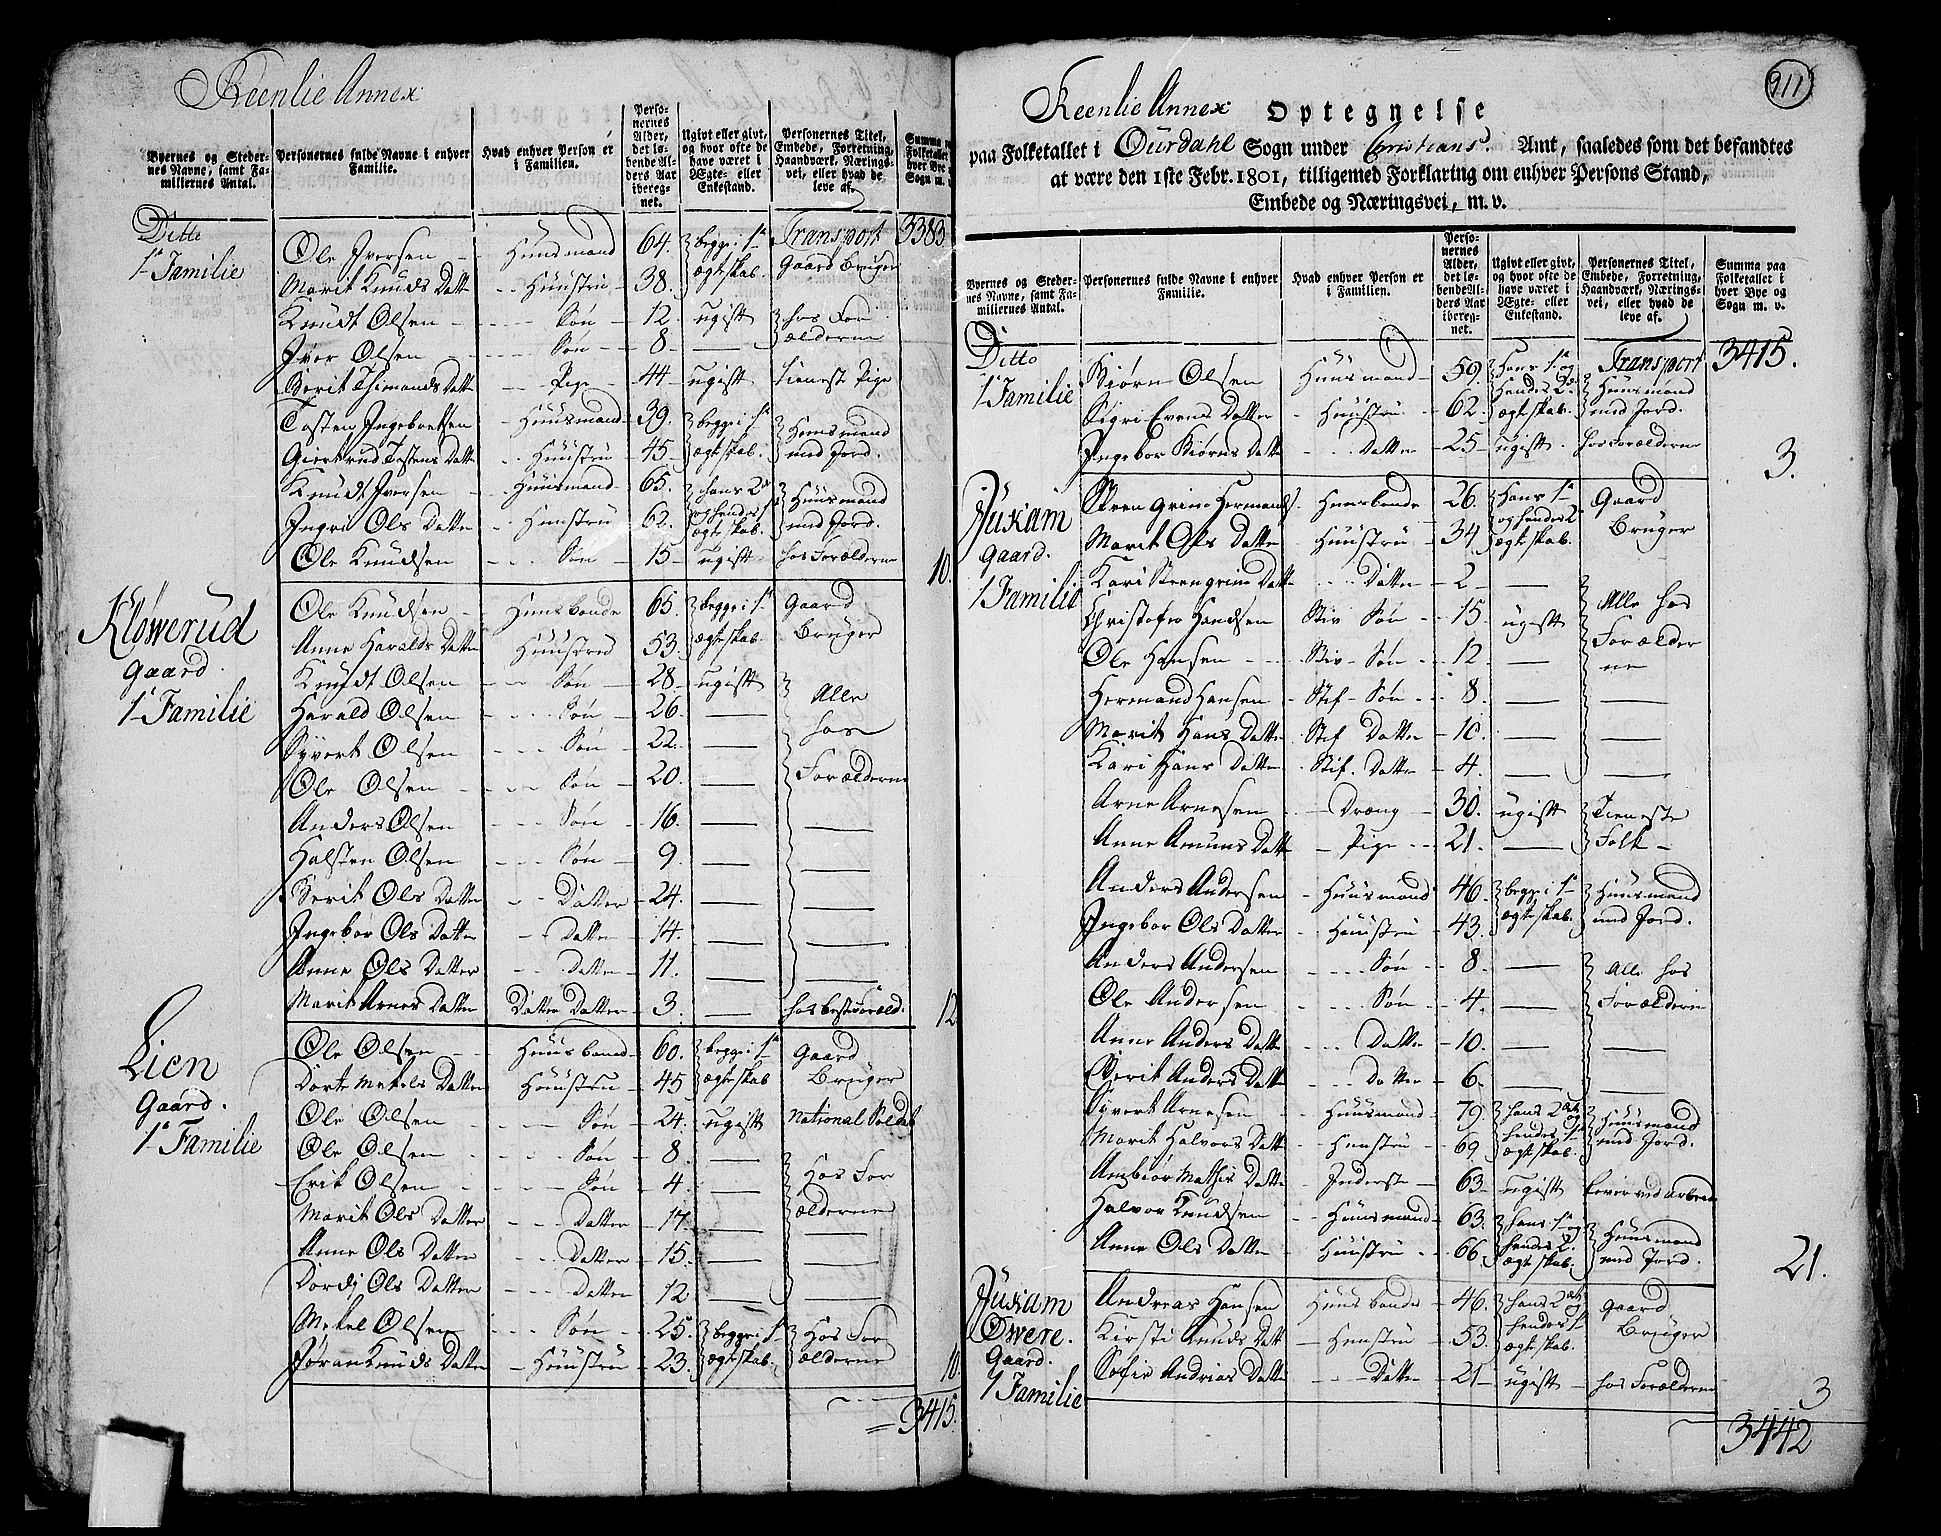 Reenlie Annex
Byernes og Steder-
nes Navne, samt Fa-
miliernes Antal.
Personernes fulde Navne i enhver
Familie.
Hvad enhver Person er
i Familien.
Perso-
nernes
Alder,
det lø-
bende Al-
ders Aar
ibereg-
net.
Ugivt eller givt,
og hvor ofte de
have været i
Ægte- eller
Enkestand.
Personernes Titel,
Embede, Forretning,
Haandværk, Nærings-
vei, eller hvad de
leve af.
Summa
Folketallet
hver Bye
Sogn m. v.
Transport 3383
Ditto
1 Familie
Ole Iversen Huusmand 64. begge i 1te ægteskab. Gaard Bruger
Marit Knuds Datter Huustru 38.
Knudt Olsen Søn 12 ugift hos Forælderne
Iver Olsen Søn 8 —
Berit Thimands Datter Pige 44 ugift tieneste Pige
Tosten Ingebretsen Huusmand 39. begge i 1te ægteskab. Huusmand med Jord.
Giertrud Tostens Datter Huustru 45
Knudt Iversen Huusmand 65. hans 2det og hendes 1te ægteskab. Huusmand med Jord.
Ingri Ols Datter Huustru 62.
Ole Knudsen Søn 15 ugift hos Forælderne 10.
Kløwerud
Gaard.
1 Familie
Ole Knudsen Huusbonde 65. begge i 1te ægteskab. Gaard Bruger
Anne Haralds Datter Huustrue 53.
Knudt Olsen Søn 28 ugift Alle hos Forælderne
Harald Olsen Søn 26. —
Syvert Olsen Søn 22. —
Ole Olsen Søn 20. —
Anders Olsen Søn 16. — —
Halsten Olsen Søn 9. — —
Berit Ols Datter Datter 24. — —
Ingebor Ols Datter Datter 14. — —
Anne Ols Datter Datter 11. — —
Marit Arnes Datter Datter Datter 3. — hos bestforæld. 12
Lien
Gaard.
1 Familie
Ole Olsen Huusbond 60. begge i 1te ægteskab Gaard Bruger
Dorte Mekels Datter Huustru 45
Ole Olsen Søn 24. ugift National Soldat
Ole Olsen Søn 8. — Hos Forælderne
Erik Olsen Søn 4. —
Marit Ols Datter Datter 17. — —
Anne Ols Datter Datter 15. — —
Dordi Ols Datter Datter 12 — —
Mekel Olsen Søn 25. begge i 1te ægteskab. Hos Forælderne
Jøran Knuds Datter Huustru 23. 10.
= 3415.
911
Reenlie Annex Optegnelse
paa Folketallet i Ourdahl Sogn under Christians Amt, saaledes som det befandtes
at være den 1ste Febr. 1801, tilligemed Forklaring om enhver Persons Stand,
Embede og Næringsvei, m. v.
Byernes og Steder-
nes Navne, samt Fa-
miliernes Antal.
Personernes fulde Navne i enhver
Familie.
Hvad enhver Person er
i Familien.
Perso-
nernes
Alder,
det lø-
bende Al-
ders Aar
ibereg-
net.
Ugivt eller givt,
og hvor ofte de
have været i
Ægte- eller
Enkestand.
Personernes Titel,
Embede, Forretning,
Haandværk, Nærings-
vei, eller hvad de
leve af.
Summa paa
Folketallet i
hver Bye og
Sogn m. v.
Transport 3415.
Ditto
1 Familie
Biørn Olsen Huusmand 59. Hans 1te og Hendes 2det ægteskab. Huusmand med Jord.
Sigri Evens Datter Huustru 62.
Ingebor Biørns Datter Datter 25 ugift hos Forælderne 3.
Juxam
Gaard.
1 Familie
Steengrim Hermands. Huusbonde 26. Hans 1te og hendes 2 ægteskab. Gaard Bruger
Marit Ols Datter Huustru 34
Kari Steengrims Datter Datter 2 —
Christofer Handsen Stiv Søn 15. ugift Alle hos Forælderne
Ole Hansen Stiv Søn 12 —
Hermand Hansen Stif Søn 8. — —
Marit Hans Datter Stif Datter 10. — —
Kari Hans Datter Stif. Datter 4. — —
Arne Arnesen Dræng 30. ugift Tieneste Folk
Anne Amuns Datter Pige 21. —
Anders Andersen Huusmand 46. begge i 1te ægteskab. Huusmand med Jord.
Ingebor Ols Datter Huustru 43.
Anders Andersen Søn 8. — Alle hos Forælderne
Ole Andersen Søn 4. —
Anne Anders Datter Datter 10. — —
Berit Anders Datter Datter 6. — —
Syvert Arnesen Huusmand 79. hans 2det og hendes 1te ægteskab. Huusmand med Jord.
Marit Halvors Datter Huustru 69.
Ambiør Mathis Datter Inderste 63 ugift lever ved arbeide
Halvor Knudsen Huusmand 63. hans 1te og hendes 2. ægteskab. Huusmand med Jord.
Anne Ols Datter Huustru 66. 21.
Juxam
Øwere.
Gaard.
1 Familie
Andreas Hansen Huusbonde 46. hans 2det og hendes 1te ægteskab. Gaard Bruger
Kirsti Knuds Datt Huustru 53.
Sofie Andrias Datt Datter 21 ugift hos Forælderne 3
3442